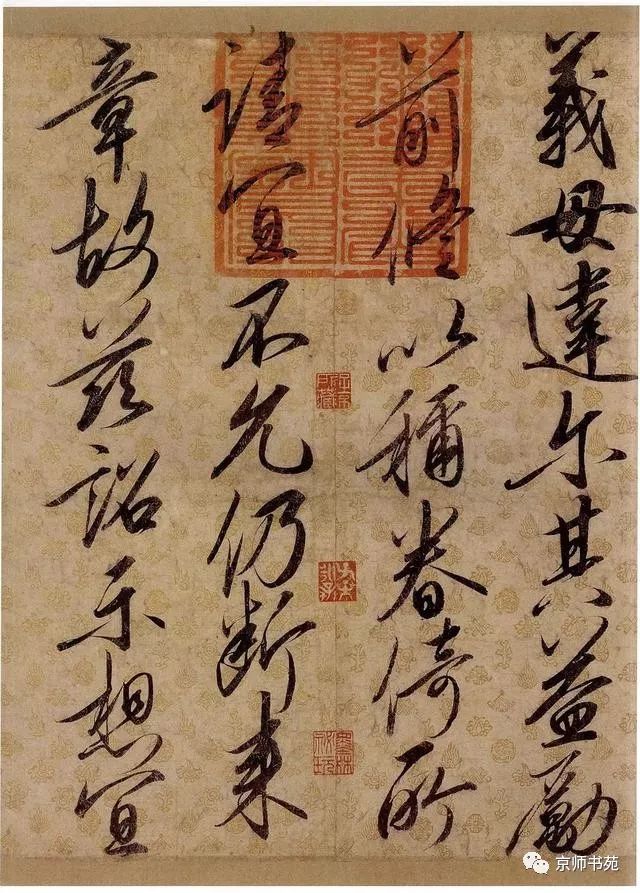 義毋違尔其益勵
前修以稱眷倚所
請宜不允仍斷来
章故茲詔示想宜
京师书苑